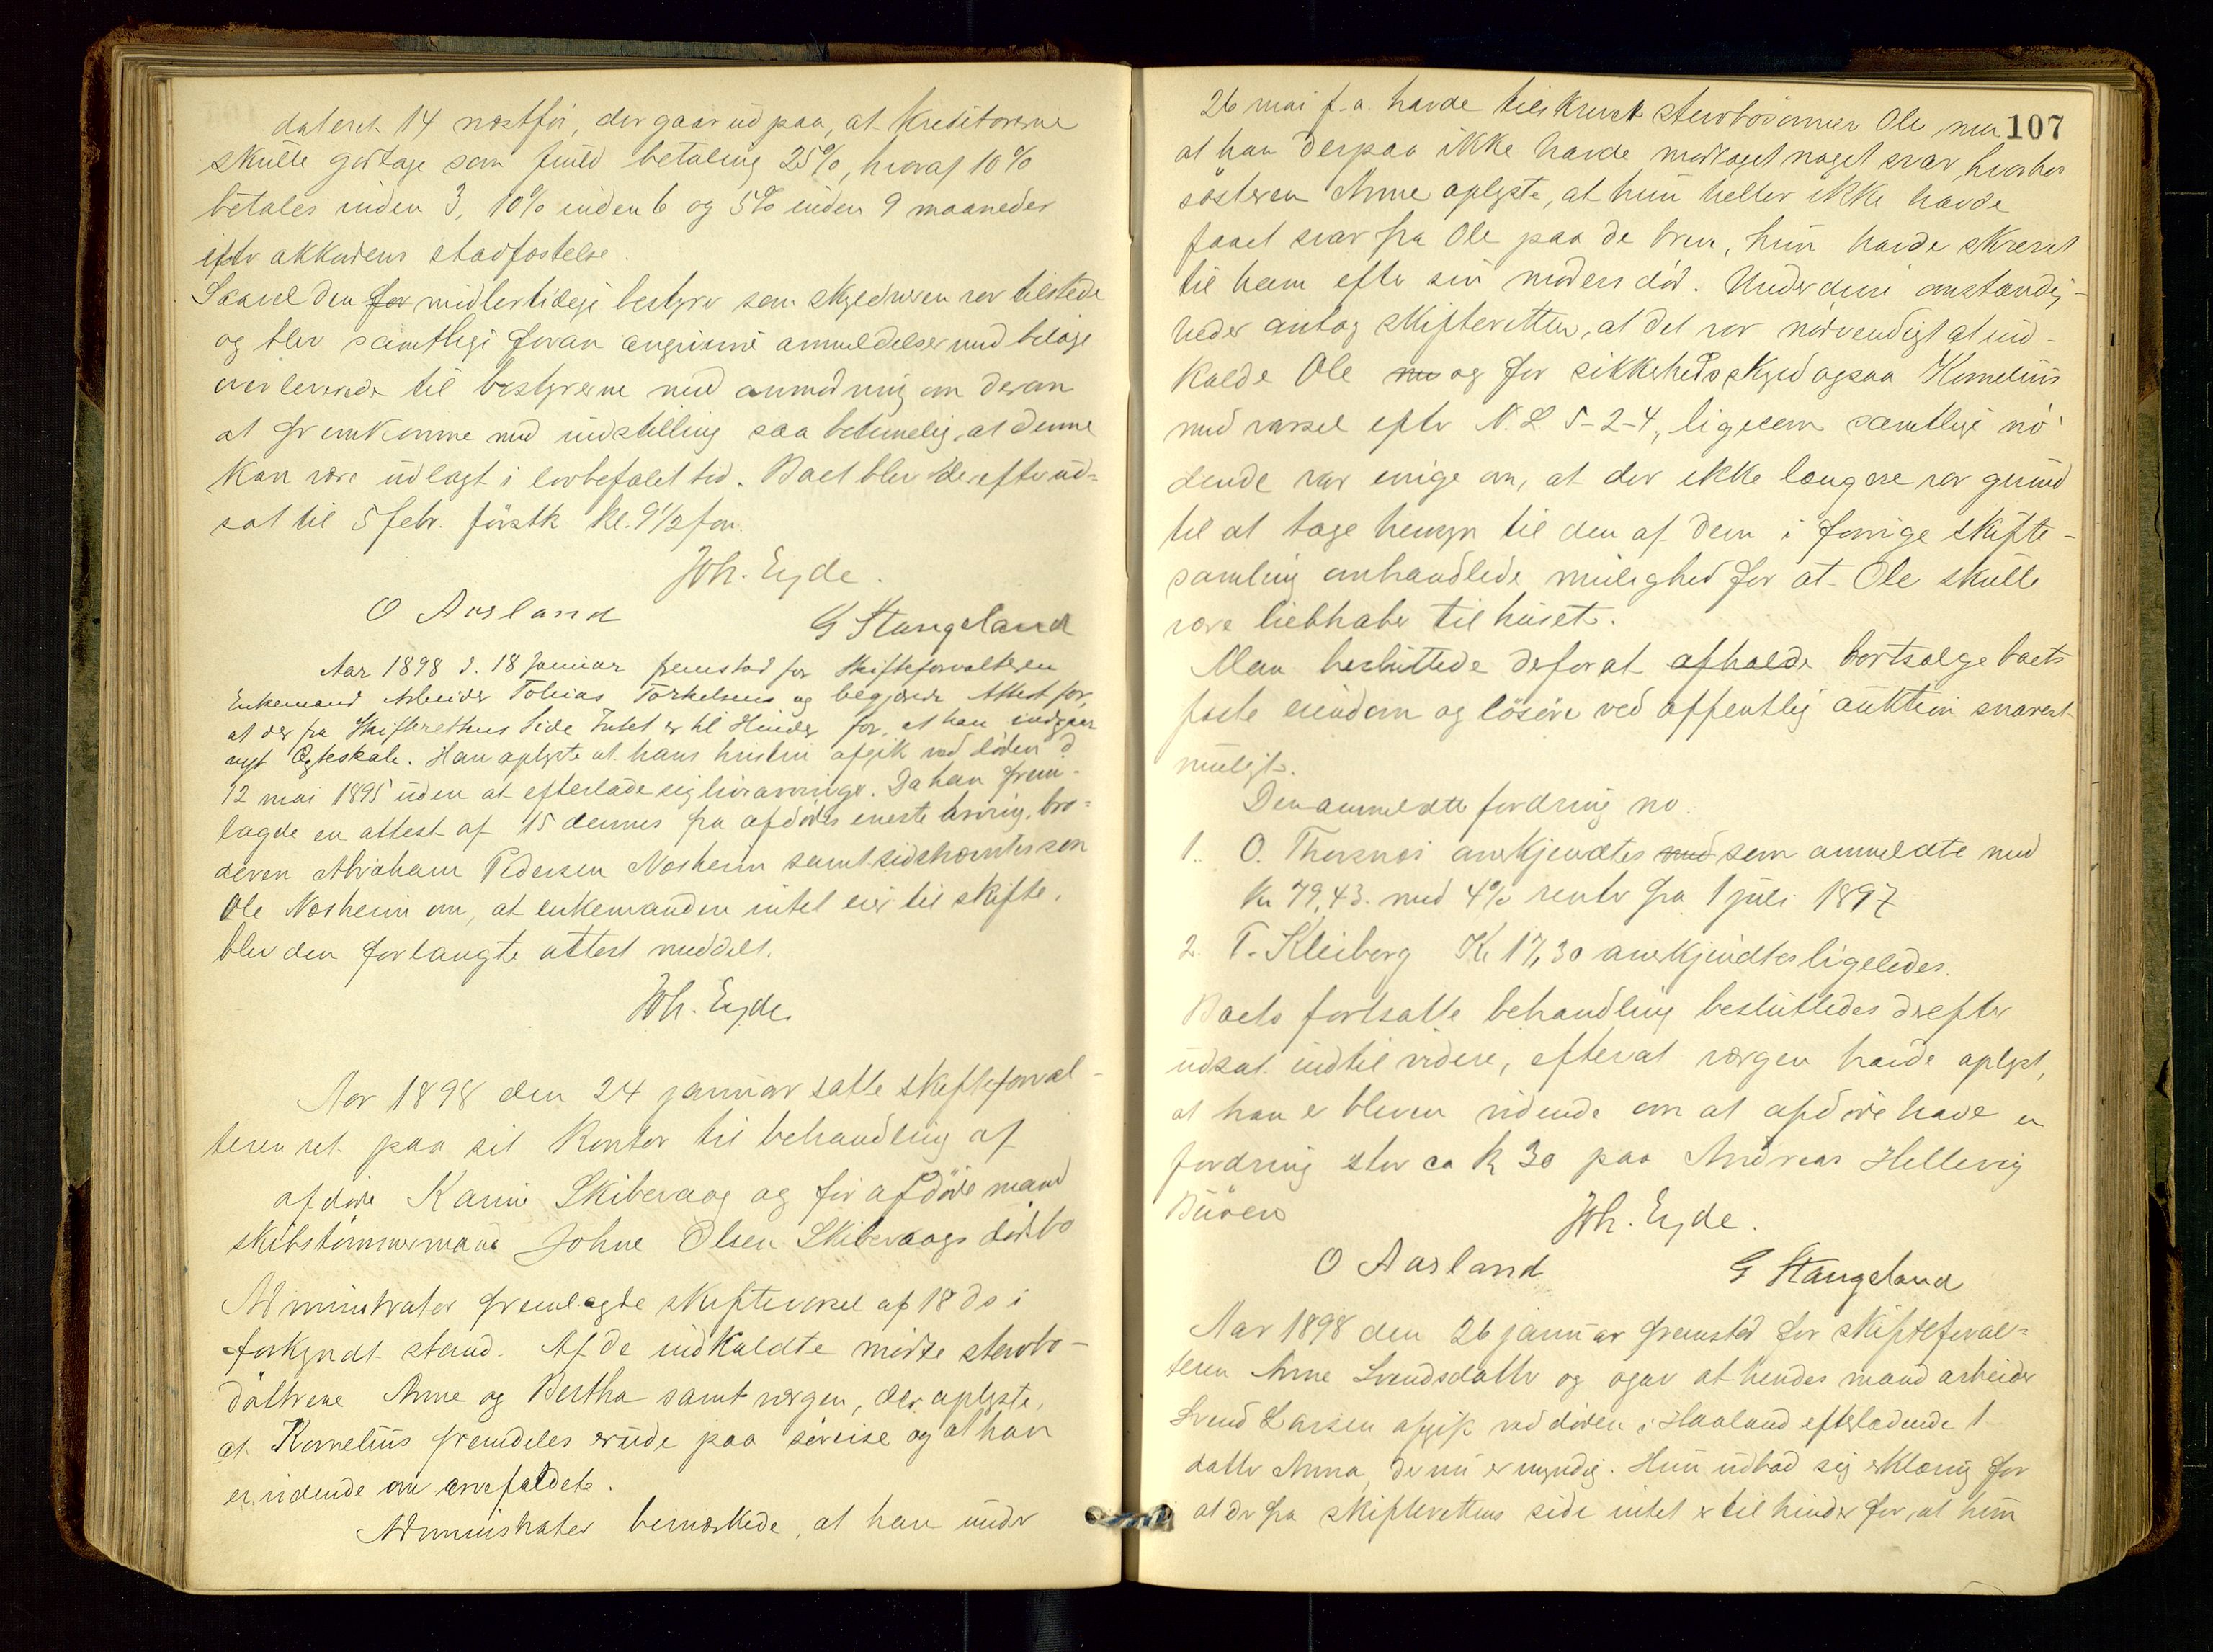 dateret 14 næstfør, der gaar ud paa, at kreditorerne
skulle godtage som fuld betaling 25%, hvoraf 10%
betales inden 3, 10% inden 6 og 5% inden 9 maaneder
efter akkordens stadfæstelse.
Saavel den for midlertidige bestyrer som skyldneren var tilstede
og blev samtlige foran angivne anmeldelser med bilage
overleveret til bestyrerne med anmodning om deran
at fremkomme med indstilling saa betimelig, at denne
kan være udlagt i lovbefalet tid. Boet blev derefter ud-
sat til 5 febr. førstk kl. 9 1/2 fm.
Wh. Eyde.
O Aarsland
G Stangeland
Aar 1898 d. 18 Januar fremstod for Skifteforvalteren
Enkemand Arbeider Tobias Torkelsens og begjærede Attest for,
at der fra Skifterettens Side Intet er til Hinder for, at han indgaar
nyt Ægteskab. Han oplyste at hans hustru afgik ved døden d
12 mai 1895 uden at efterlade sig livsarvinger. Da han frem-
lagde en attest af 15 dennes fra afdødes eneste arving, bro-
deren Abraham Pedersen Nosheim samt sidstnævntes søn
Ole Nosheim om, at enkemanden intet eier til skifte,
blev den forlangte attest meddelt.
Wh. Eyde.
Aar 1898 den 24 januar satte skifteforval-
teren ret paa sit kontor til behandling af
afdøde Karine Skibevaag og før afdøde mand
skibstømmermand Johne Olsen Skibevaags dødsbo
Administrator fremlagde skiftevarsel af 18 ds i
forkyndt stand. Af de indkaldte mødte stervbo-
døttrene Anne og Bertha samt værgen, der oplyste,
at Kornelius fremdeles er ude paa søreise og at han
er vidende om arvefaldet.
Administrator bemærkede, at han under
107
26 mai f.a. havde tilskrevet stervbosønnen Ole, men
at han derpaa ikke havde modtaget noget svar, hvorhos
søsteren Anne oplyste, at hun heller ikke havde
faaet svar fra Ole paa de breve, hun havde skrevet
til ham efter sin moders død. Under disse omstændig-
heder antog skifteretten, at det var nødvendigt at ind-
kalde Ole nu og for sikkerheds skyld ogsaa Kornelius
med varsel efter N. L. 5-2-4, ligesom samtlige mø-
dende var enige om, at der ikke længere var grund
til at tage hensyn til den af dem i forrige skifte-
samling omhandlede mulighed for at Ole skulle
være liebhaber til huset.
Man besluttede derfor at afholde bortsælge boets
faste eiendom og løsøre ved offentlig auktion snarest
muligt.
Den anmeldte fordring no.
1. O. Thorsnes anerkjendtes med som anmeldte med
Kr 79,43. med 4% rente fra 1 juli 1897
2. T. Kleiberg Kr 17,30 anerkjendtes ligeledes.
Boets fortsatte behandling besluttedes derefter
udsat indtil videre, efterat værgen havde oplyst,
at han er bleven vidende om at afdøde havde en
fordring stor ca kr 30 paa Andreas Hellevig
Buøen
Wh. Eyde.
O Aarsland
G Stangeland
Aar 1898 den 26 januar fremstod for skifteforval-
teren Anne Svendsdatter og opgav at hendes mand arbeider
Svend Larsen afgik ved døden i Haaland efterladende 1
datter Anna, der nu er myndig. Hun udbad sig erklæring for
at der fra skifterettens side intet er til hinder for, at hun